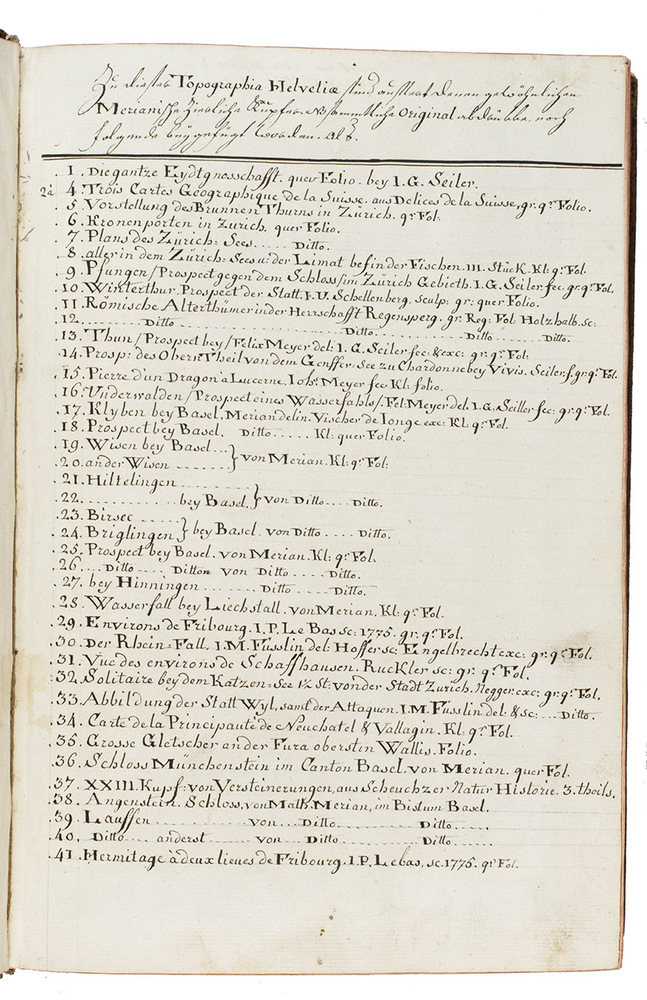 Zu dieser Topographia Helvetiæ sind ausser denen gewöhnlichen
Merianische Zierliche Kupfer sammtliche Original abdrükke, noch
folgende beygefügt worden. als.
1. Die gantze Eydtgnosschafft. quer Folio. bey I.G. Seiler.
2à 4. Trois Cartes Geographique de la Suisse. aus Delices de la Suisse, gr. qr. Folio.
5. Vorstellung des Brunnen Thurns in Zürich. qr. Fol.
6. Kronenporten in Zurich. quer Folio.
7. Plans des Zürich=Sees..... Ditto.
8. aller in dem Zürich=Sees u: der Limat befinder Fischen. III. Stück. Kl: qr. Fol.
9. Pfungen / Prospect gegen dem Schloss / im Zürich Gebieth. I.G. Seiler. fec. gr. qr. Fol.
10. Winterthur. Prospect der Statt. I.U. Schellenberg. sculp: gr: quer Folio.
11. Römische Alterthumer in der Herrschafft Regensperg. gr. Reg: Fol: Holzhalb. sc:
12. ........ Ditto ........ Ditto ........ Ditto ..... Ditto.
13. Thun / Prospect bey / Felix Meyer del: I.G. Seiler fec: & exc: gr: qr. Fol:
14. Prosp: des Obern Theil von dem Genffer=See zu Chardonne bey Vivis. Seiler. f. gr. qr. Fol.
15. Pierre d'un Dragon à Lucerne, Ioh: Meyer fec Kl: folio.
16. Underwalden / Prospect eines Wasserfahls /. Fel: Meyer del: I.G. Seiller fec: gr: qr. Fol.
17. Klyben bey Basel, Merian delin. Vischer de Ionge exc: Kl: qr. Fol.
18. Prospect bey Basel. Ditto..... Kl: quer Folio.
19. Wisen bey Basel...
20. ander Wisen ...... } von Merian. Kl: qr. Fol:
21. Hiltelingen ........
22. .............. bey Basel. } von Ditto.... Ditto.
23. Birsec ......
24. Briglingen } bey Basel. von Ditto .... Ditto.
25. Prospect bey Basel. von Merian. Kl: qr. Fol.
26. ... Ditto .... Ditton von Ditto .... Ditto.
27. bey Hinningen ........ Ditto .... Ditto.
28. Wasserfall bey Liechstall, von Merian. Kl: qr. Fol.
29. Environs de Fribourg. I.P. Le Bas sc: 1775. gr. qr. Fol.
30. Der Rhein=Fall, I.M. Füsslin del: Hoffer sc: Engelbrecht exc: gr: qr. Fol.
31. Vue des environs de Schaffhausen. Ruckler sc: gr. qr. Fol.
32. Solitaire bey dem Katzen=See 1½ St: von der Stadt Zurich. Negger. exc: gr: qr. Fol.
33. Abbildung der Statt Wyl, samt der Attaquen. I.M. Füsslin del: & sc: ... Ditto.
34. Carte de la Principauté de Neuchatel & Vallagin. Kl: qr. Fol.
35. Grosse Gletscher an der Fura obersten Wallis. Folio.
36. Schloss Münchenstein im Canton Basel. von Merian. quer Fol.
37. XXIII. Kupf: von Versteinerungen, aus Scheuchzer Natur Historie. 3. theils.
38. Angenstein. Schloss, von Math. Merian, im Bistum Basel.
39. Lauffen ............ von ... Ditto ........ Ditto .....
40. Ditto.... anderst ..... von ... Ditto ........ Ditto .....
41. Hermitage à deux lieues de Fribourg. I.P. Lebas, sc. 1775. qr. Fol.